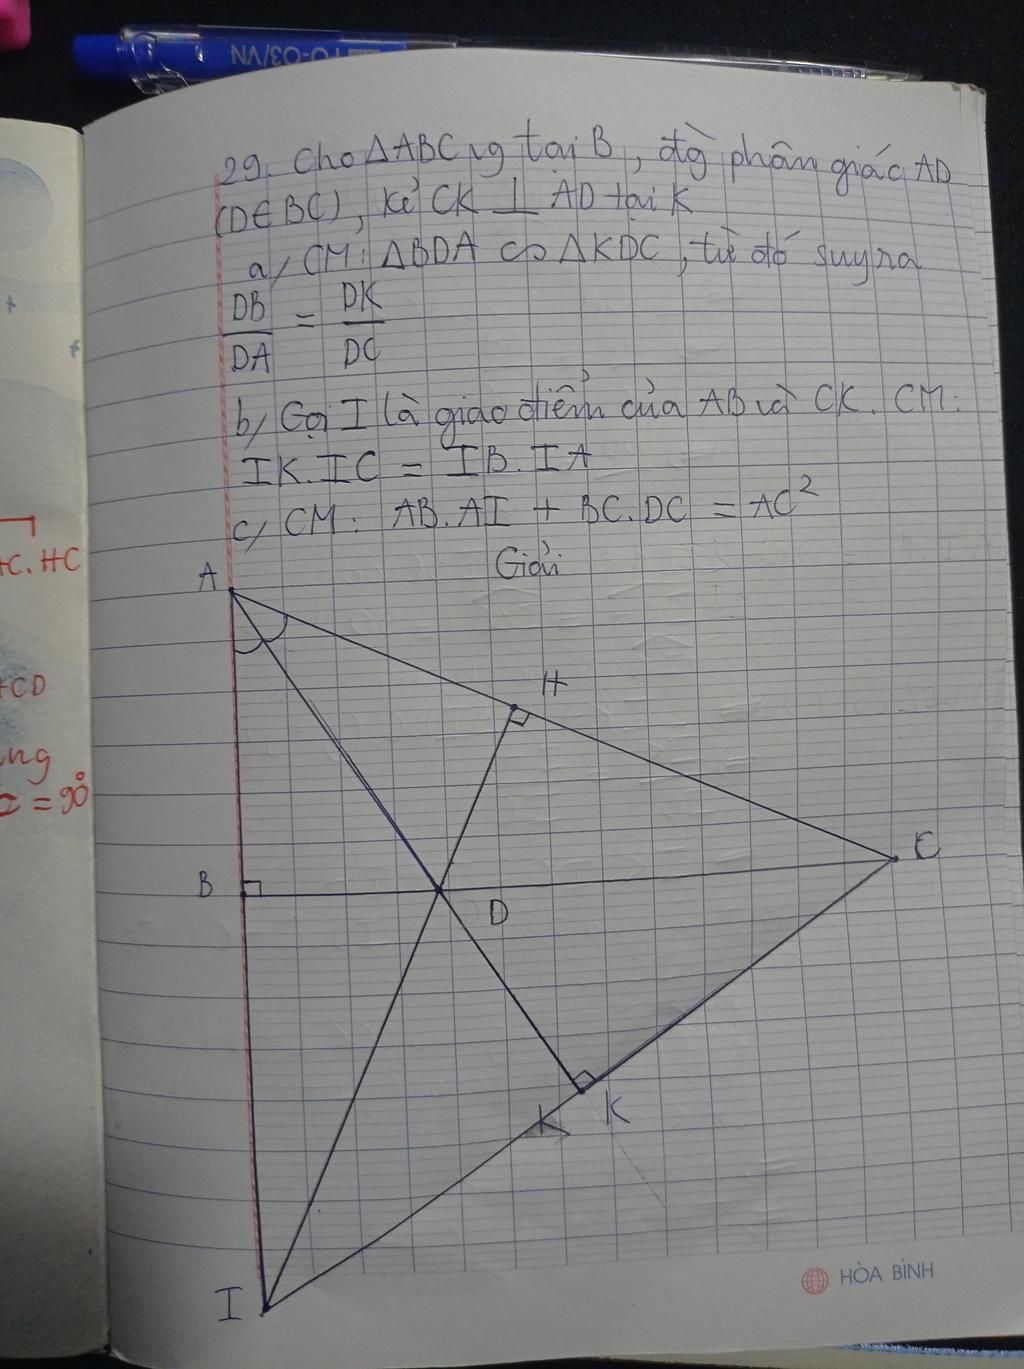 TO-03/VN
29. Cho ΔABC vg tại B, đg phân giác AD
(D∈BC), kẻ CK ⊥ AD tại K
a/ CM: ΔBDA ∽ ΔKDC, từ đó suy ra
DB/DA = DK/DC
b/ Gọi I là giao điểm của AB và CK. CM:
IK.IC = IB.IA
c/ CM: AB.AI + BC.DC = AC²
Giải
C.HC
+CD
ng
= 90°
A
H
C
B
D
K
K
I
HÒA BÌNH